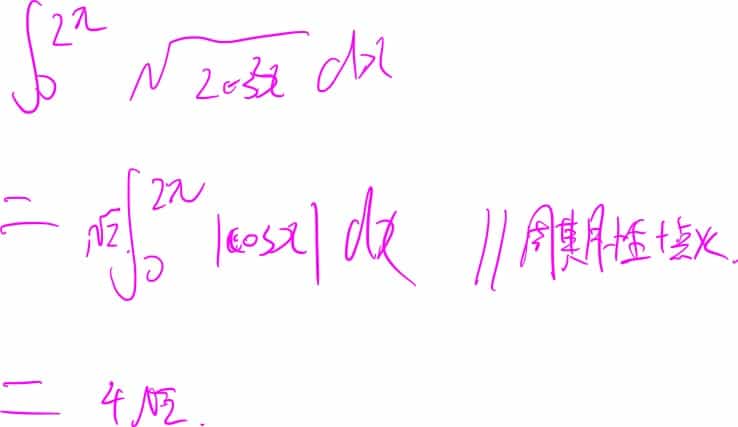 ∫₀^{2π} √(2cos²x) dx
= √2 ∫₀^{2π} |cosx| dx // 周期性+点火.
= 4√2.